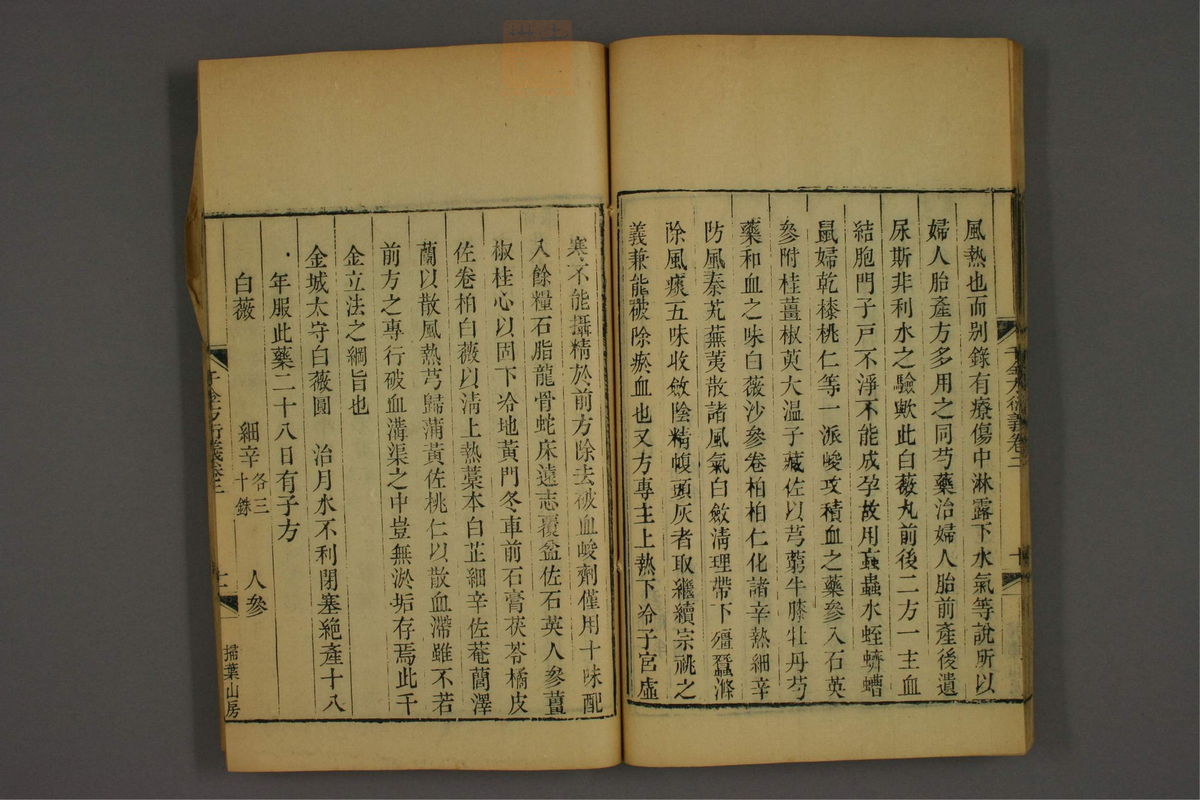 風熱也而别錄有療傷中淋露下水氣等說所以
婦人胎產方多用之同芍藥治婦人胎前產後遺
尿斯非利水之驗歟此白薇丸前後二方一主血
結胞門子戸不淨不能成孕故用蝱蟲水蛭蠐螬
鼠婦乾桼桃仁等一派峻攻積血之藥參入石英
參附桂薑椒萸大温子藏佐以芎藭牛膝牡丹芍
藥和血之味白薇沙參卷柏柏仁化諸辛熱細辛
防風秦艽蕪荑散諸風氣白斂淸理帶下殭蠶滌
除風痰五味收斂陰精幞頭灰者取繼續宗祧之
義兼能袚除瘀血也又方專主上熱下冷子宮虛
千金方衍義卷二
十
寒不能攝精於前方除去破血峻劑僅用十味配
入餘糧石脂龍骨蛇床遠志覆盆佐石英人參薑
椒桂心以固下冷地黃門冬車前石膏茯苓橘皮
佐卷柏白薇以淸上熱藁本白芷細辛佐菴䕡澤
蘭以散風熱芎歸蒲黃佐桃仁以散血滯雖不若
前方之專行破血溝渠之中豈無淤垢存焉此千
金立法之綱旨也
金城太守白薇圓 治月水不利閉塞絶產十八
年服此藥二十八日有子方
白薇 細辛各三十銖 人參
千金方衍義卷二
掃葉山房